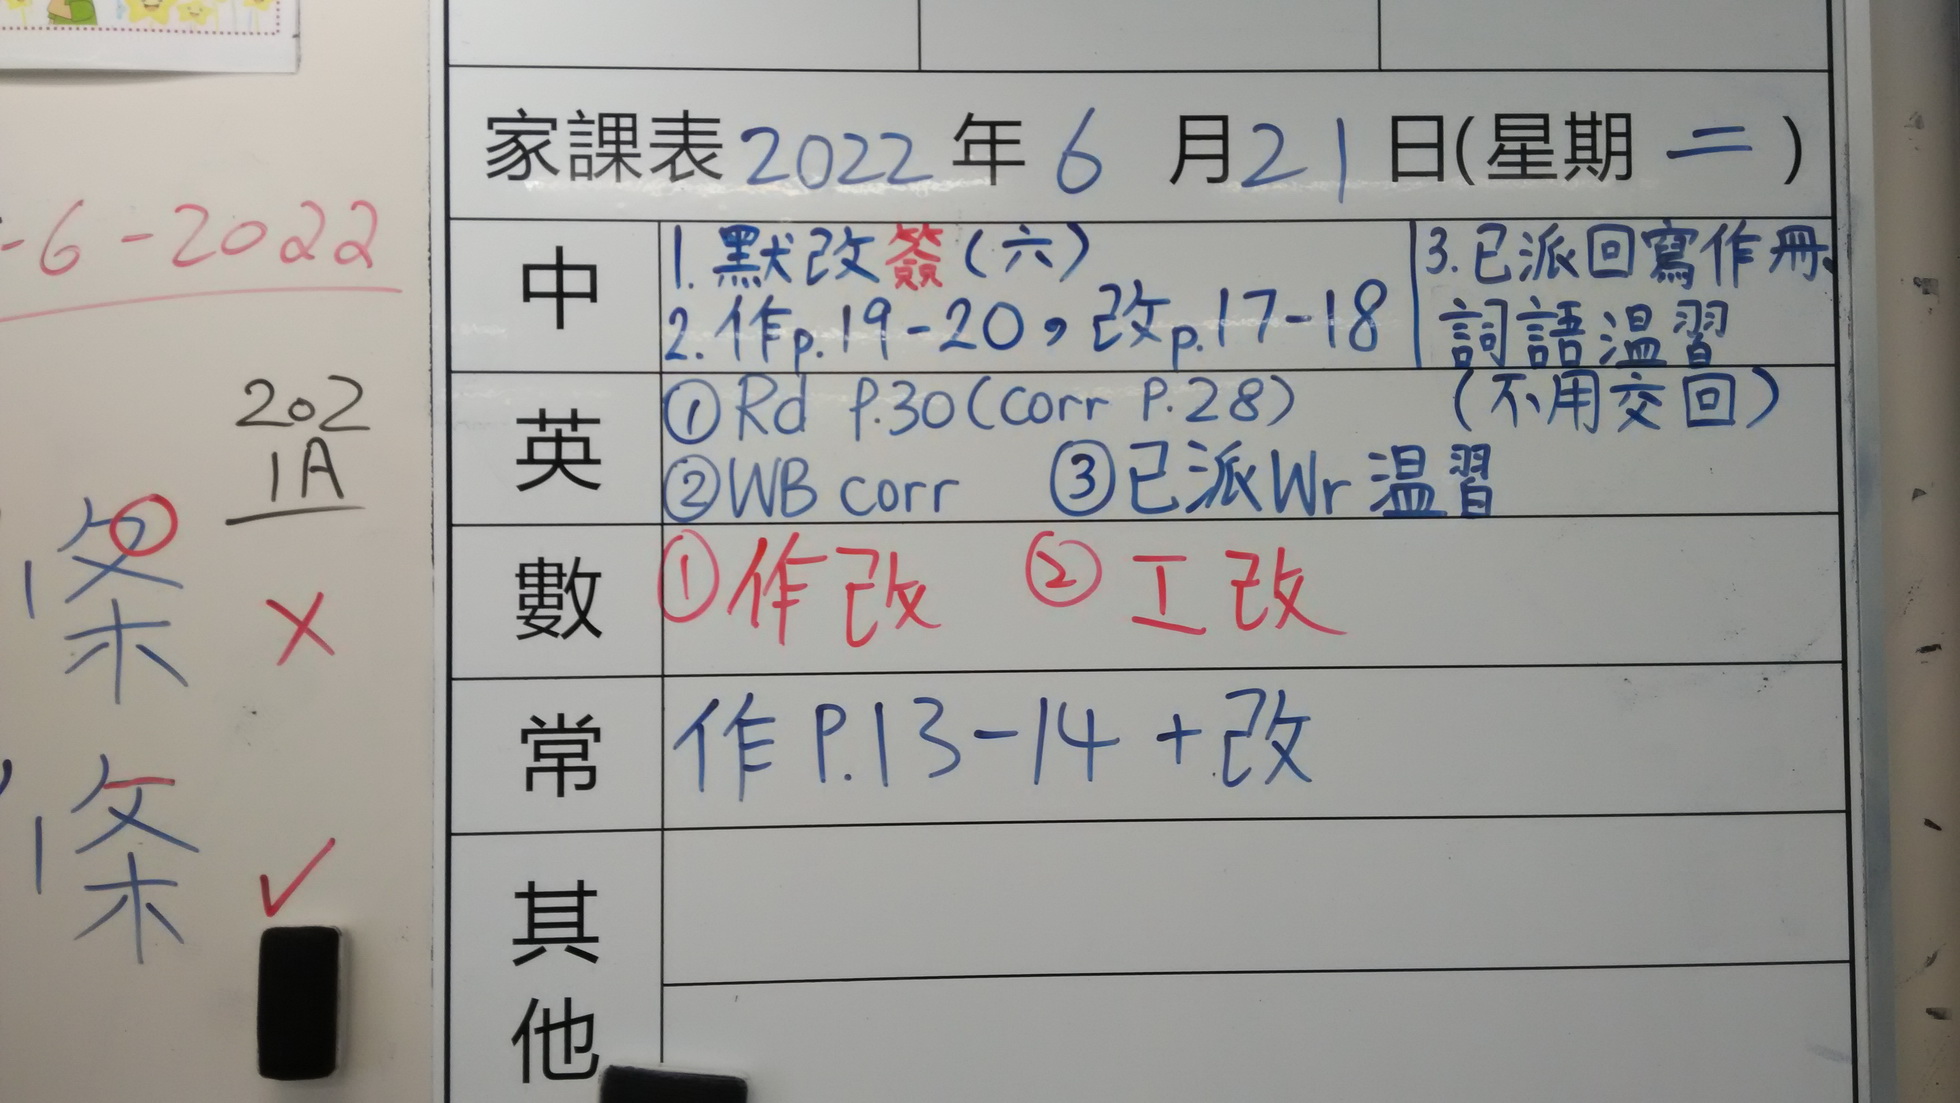 家課表 2022 年 6 月 21 日(星期 二 )
中
1. 默改簽(六)
2. 作p.19-20，改p.17-18
3. 已派回寫作冊、
詞語温習
(不用交回)
英
① Rd P.30 (corr P.28)
② WB corr ③ 已派Wr 温習
數
① 作改 ② 工改
常
作 P.13-14 + 改
其他
-6-2022
202
1A
条
×
条
✓